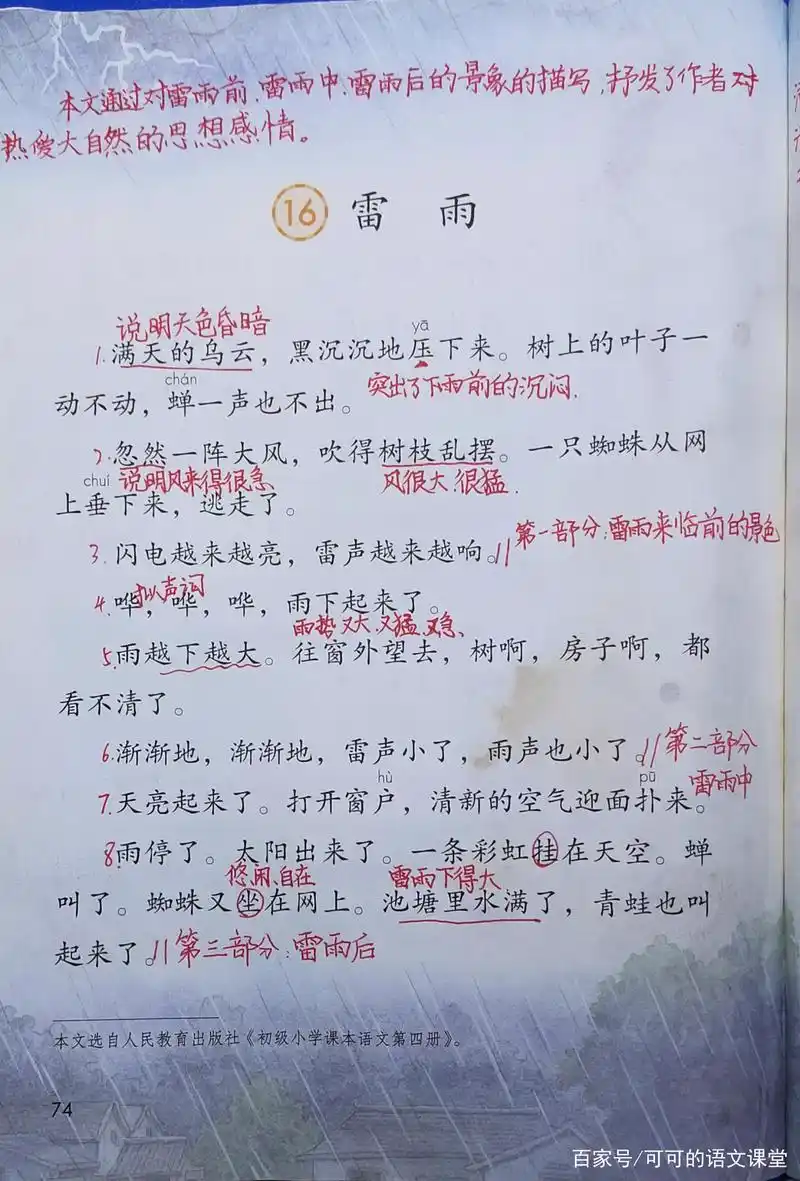 本文通过对雷雨前、雷雨中、雷雨后的景象的描写,抒发了作者对
热爱大自然的思想感情。
16 雷雨
说明天色昏暗
yā
1.满天的乌云,黑沉沉地压下来。树上的叶子一
chán
突出了下雨前的沉闷.
动不动,蝉一声也不出。
2.忽然一阵大风,吹得树枝乱摆。一只蜘蛛从网
chuí 说明风来得很急 风很大、很猛.
上垂下来,逃走了。
第一部分:雷雨来临前的景色
3.闪电越来越亮,雷声越来越响。//
拟声词
4.哗,哗,哗,雨下起来了。
雨势又大、又猛、又急、
5.雨越下越大。往窗外望去,树啊,房子啊,都
看不清了。
6.渐渐地,渐渐地,雷声小了,雨声也小了。//第二部分
雷雨中
hù pū
7.天亮起来了。打开窗户,清新的空气迎面扑来。
8.雨停了。太阳出来了。一条彩虹挂在天空。蝉
悠闲、自在 雷雨下得大
叫了。蜘蛛又坐在网上。池塘里水满了,青蛙也叫
起来了。//第三部分:雷雨后
本文选自人民教育出版社《初级小学课本语文第四册》。
74
百家号/可可的语文课堂